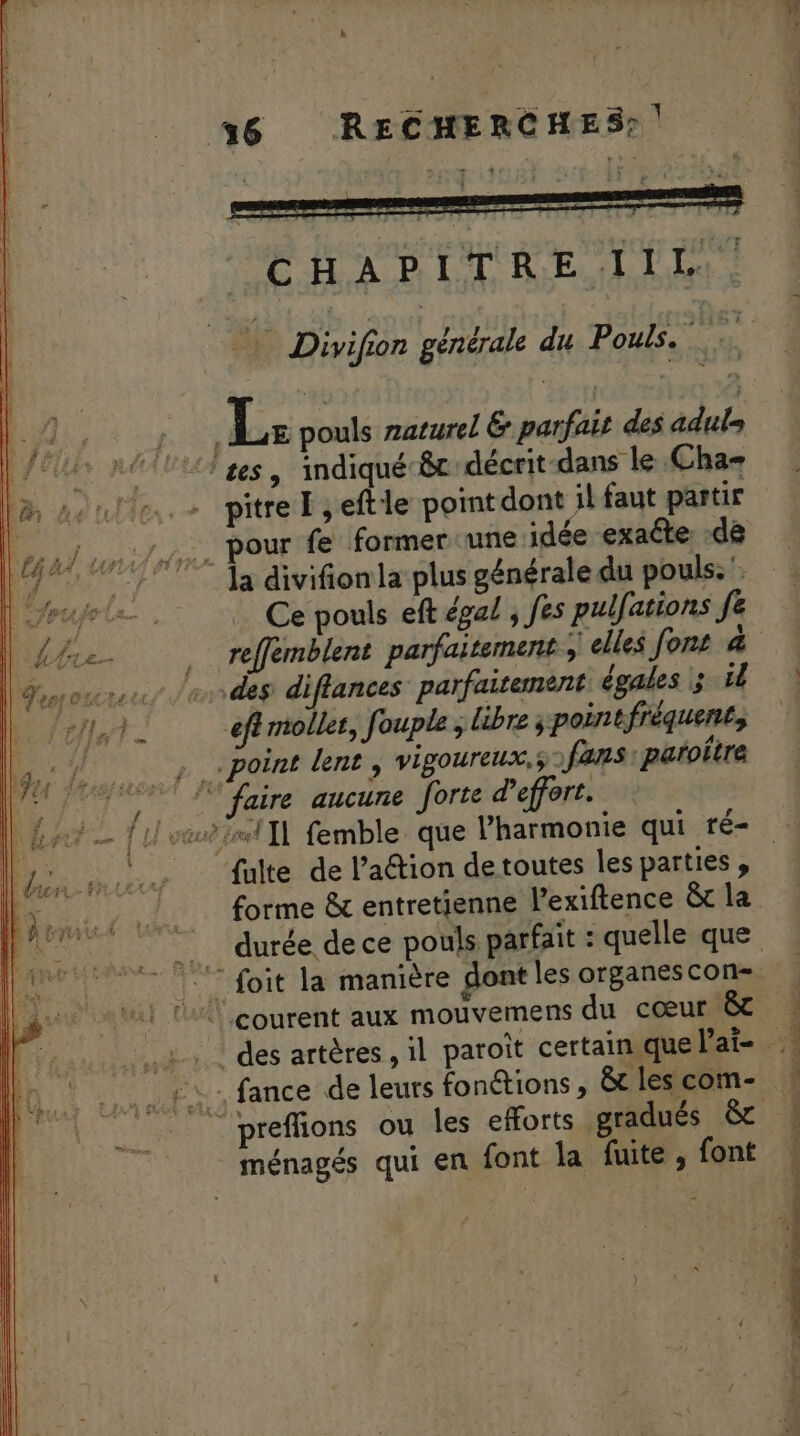 16 RECHERCHES
CHAPITRE III.
Diviſion générale du Pouls.
Le pouls naturel & parfait des adul-
tes, indiqué & décrit dans le Cha-
pitre I, eſt le point dont il faut partir
pour ſe former une idée exacte de
la diviſion la plus générale du pouls.
Ce pouls eſt égal, ſes pulſations ſe
reſſemblent parfaitement ; elles ſont à
des diſtances parfaitement égales ; il
eſt mollet, ſouple, libre, point fréquent,
point lent, vigoureux, ſans paroître
faire aucune ſorte d'effort.
Il ſemble que l'harmonie qui ré-
ſulte de l'action de toutes les parties,
forme & entretienne l'exiſtence & la
durée de ce pouls parfait : quelle que
ſoit la manière dont les organes con-
courent aux mouvemens du cœur &
des artères, il paroît certain que l'ai-
ſance de leurs fonctions, & les com-
preſſions ou les efforts gradués &
ménagés qui en font la ſuite, ſont